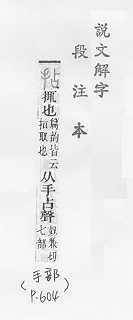 說文解字
段注本
拈 也 篇韵皆云
指取也
从手占聲 奴兼切
七部
(手部)
P.604